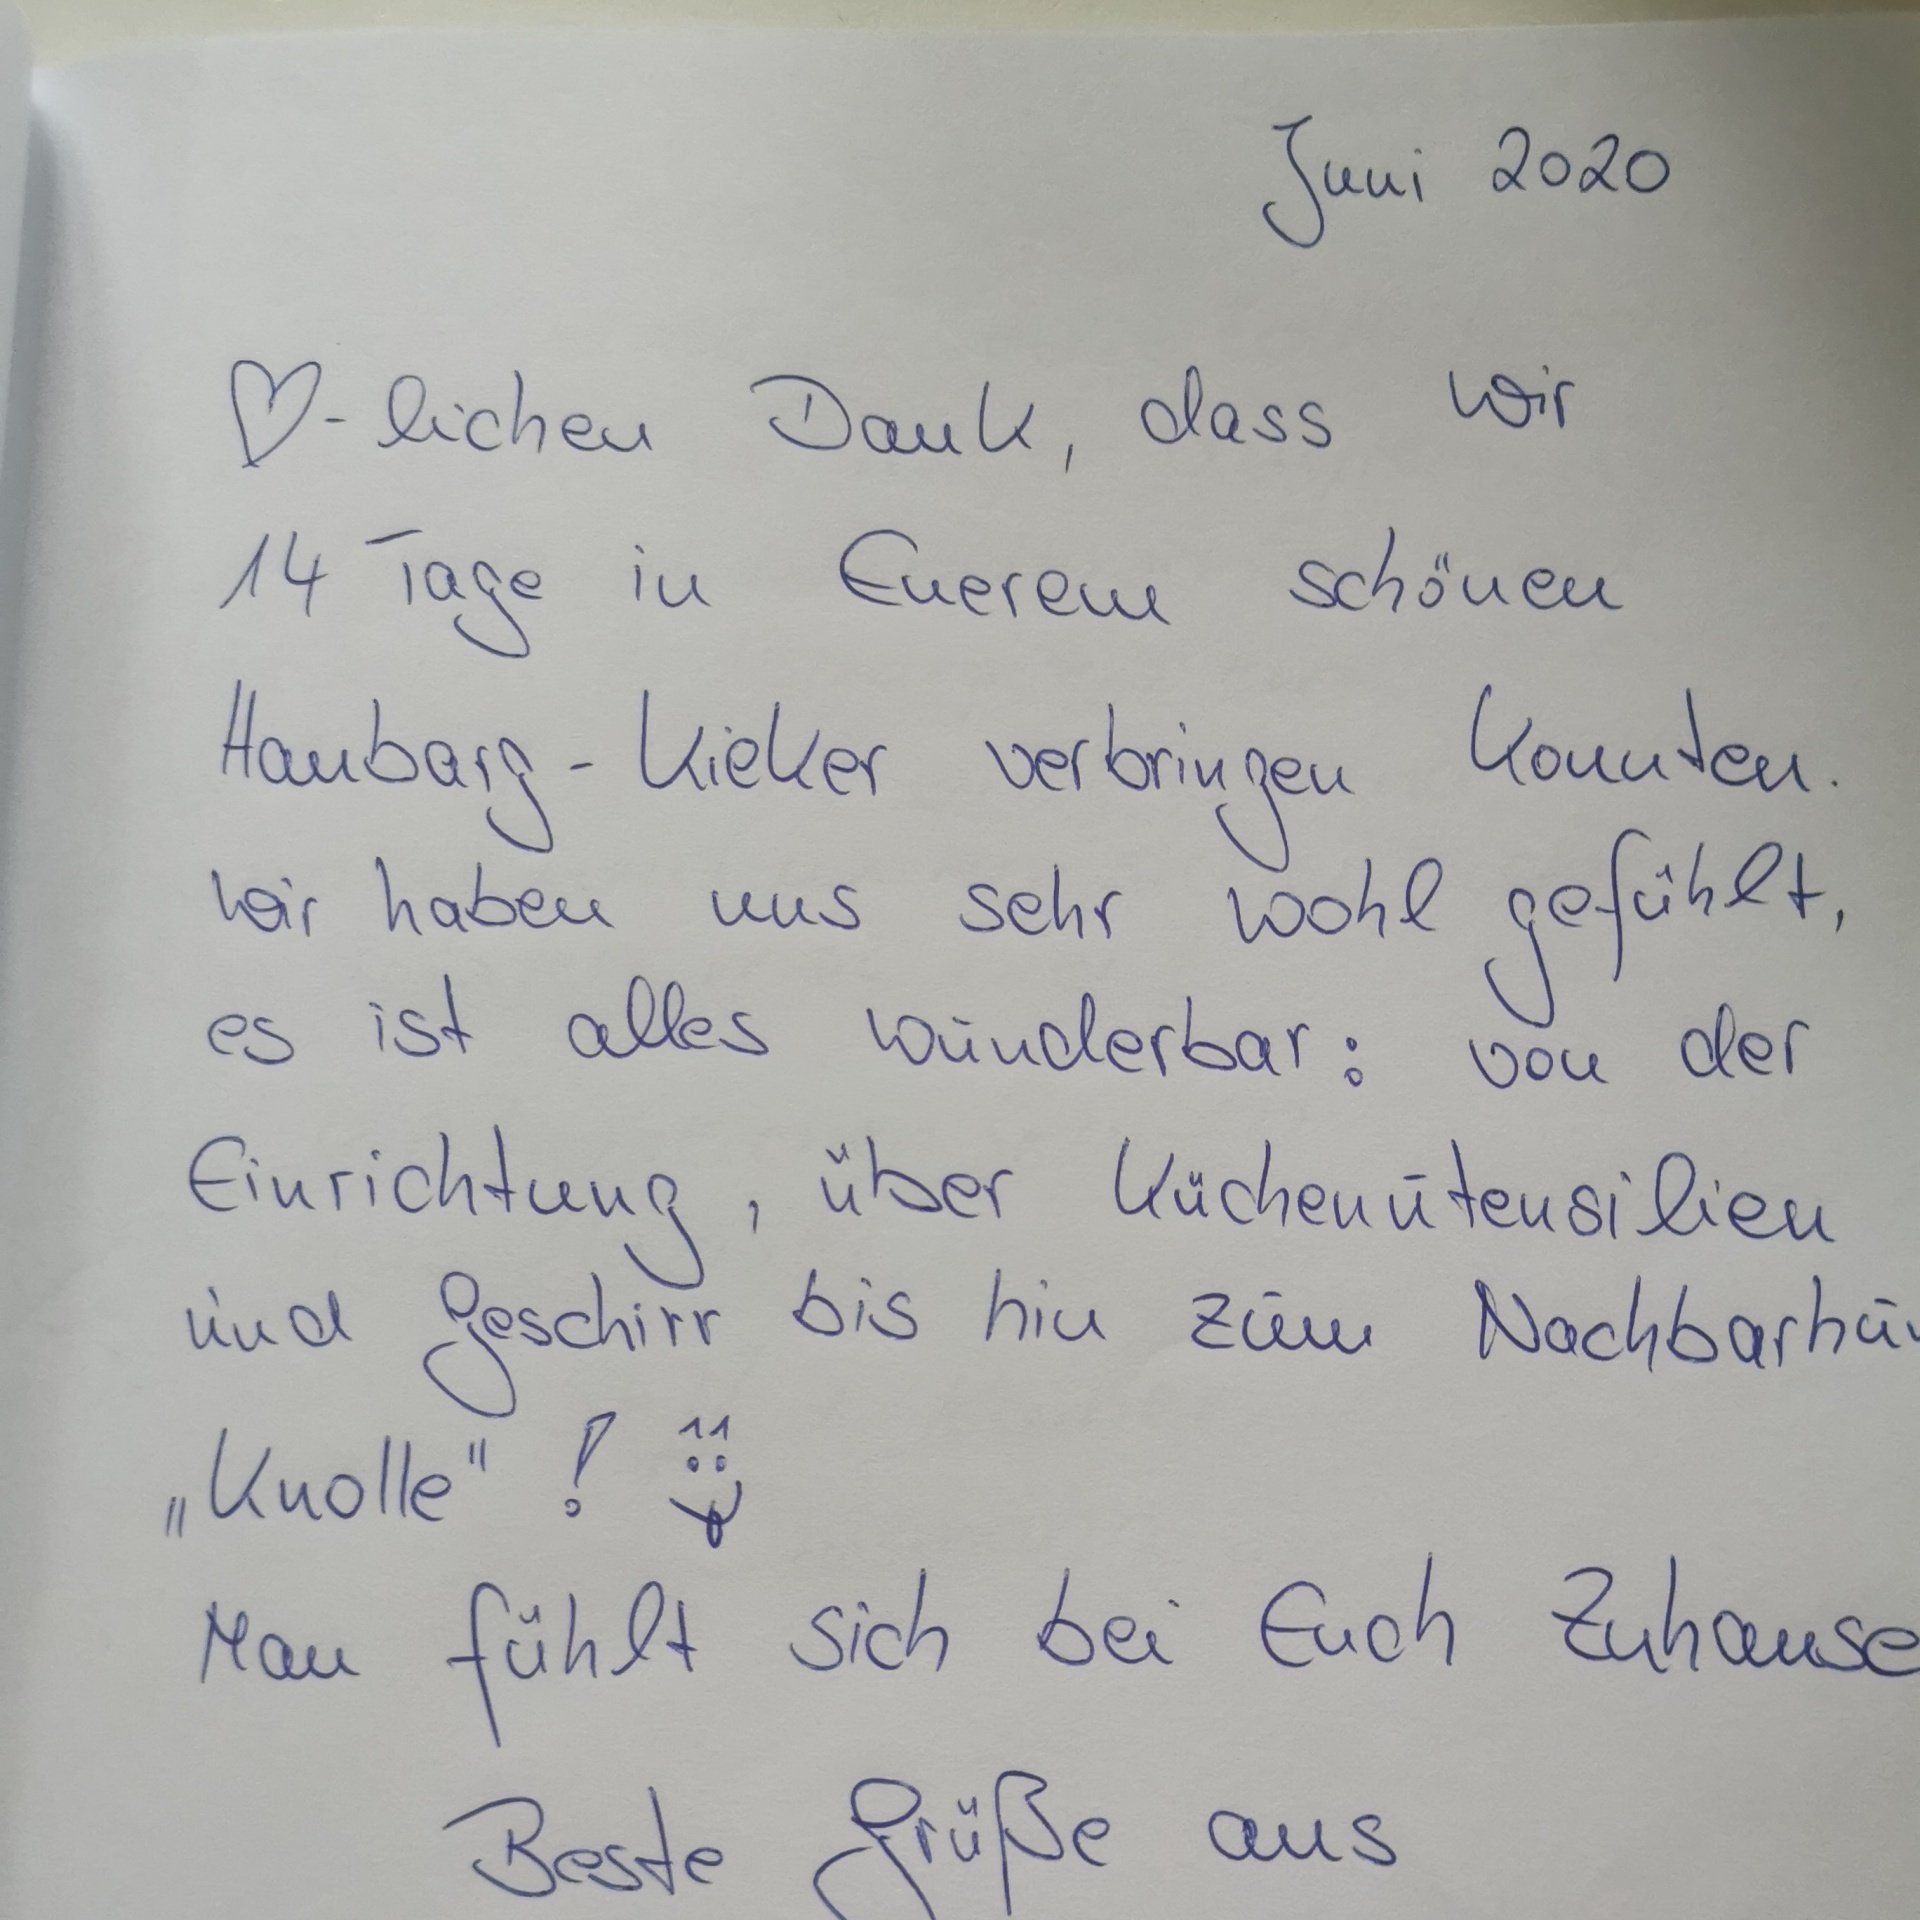 Juni 2020
♡-lichen Dank, dass wir
14 Tage in Euerem schönen
Haubarg-Kieker verbringen konnten.
Wir haben uns sehr wohl gefühlt,
es ist alles wunderbar: von der
Einrichtung, über Küchenutensilien
und Geschirr bis hin zum
„Knolle"!
Man fühlt sich bei Euch Zuhause
Beste Grüße aus